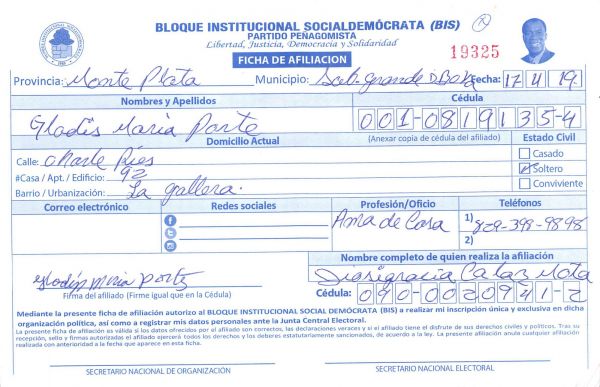 BLOQUE INSTITUCIONAL SOCIALDEMÓCRATA (BIS)
PARTIDO PEÑAGOMISTA
Libertad, Justicia, Democracia y Solidaridad
FICHA DE AFILIACION
19325
Provincia: Monte Plata Municipio: Sab. grande D Boya Fecha: 17 4 19.
Nombres y Apellidos Cédula
Gladis Maria Porte 001-0819135-4
Domicilio Actual (Anexar copia de cédula del afiliado) Estado Civil
Calle: Ríes
Casado
#Casa / Apt. / Edificio: 92
Soltero
Barrio / Urbanización: La gallera.
Conviviente
Correo electrónico Redes sociales Profesión/Oficio Teléfonos
Ama de Casa
1) 829-398-9898
2)
Nombre completo de quien realiza la afiliación
Gladis Maria Porte
Firma del afiliado (Firme igual que en la Cédula)
Cédula: 090-0020941-2
Mediante la presente ficha de afiliación autorizo al BLOQUE INSTITUCIONAL SOCIAL DEMÓCRATA (BIS) a realizar mi inscripción única y exclusiva en dicha
organización politica, así como a registrar mis datos personales ante la Junta Central Electoral.
La presente ficha de afiliación es válida si los datos ofrecidos por el afiliado son correctos, las declaraciones veraces y si el afiliado tiene el disfrute de sus derechos civiles y políticos. Tras su
recepción, sello y firmas autorizadas el afiliado ejercerá todos los derechos y los deberes estatutariamente sancionados, de acuerdo a la ley. La presente afiliación anula cualquier afiliación
realizada con anterioridad a la fecha que aparece en esta ficha.
SECRETARIO NACIONAL DE ORGANIZACIÓN SECRETARIO NACIONAL ELECTORAL